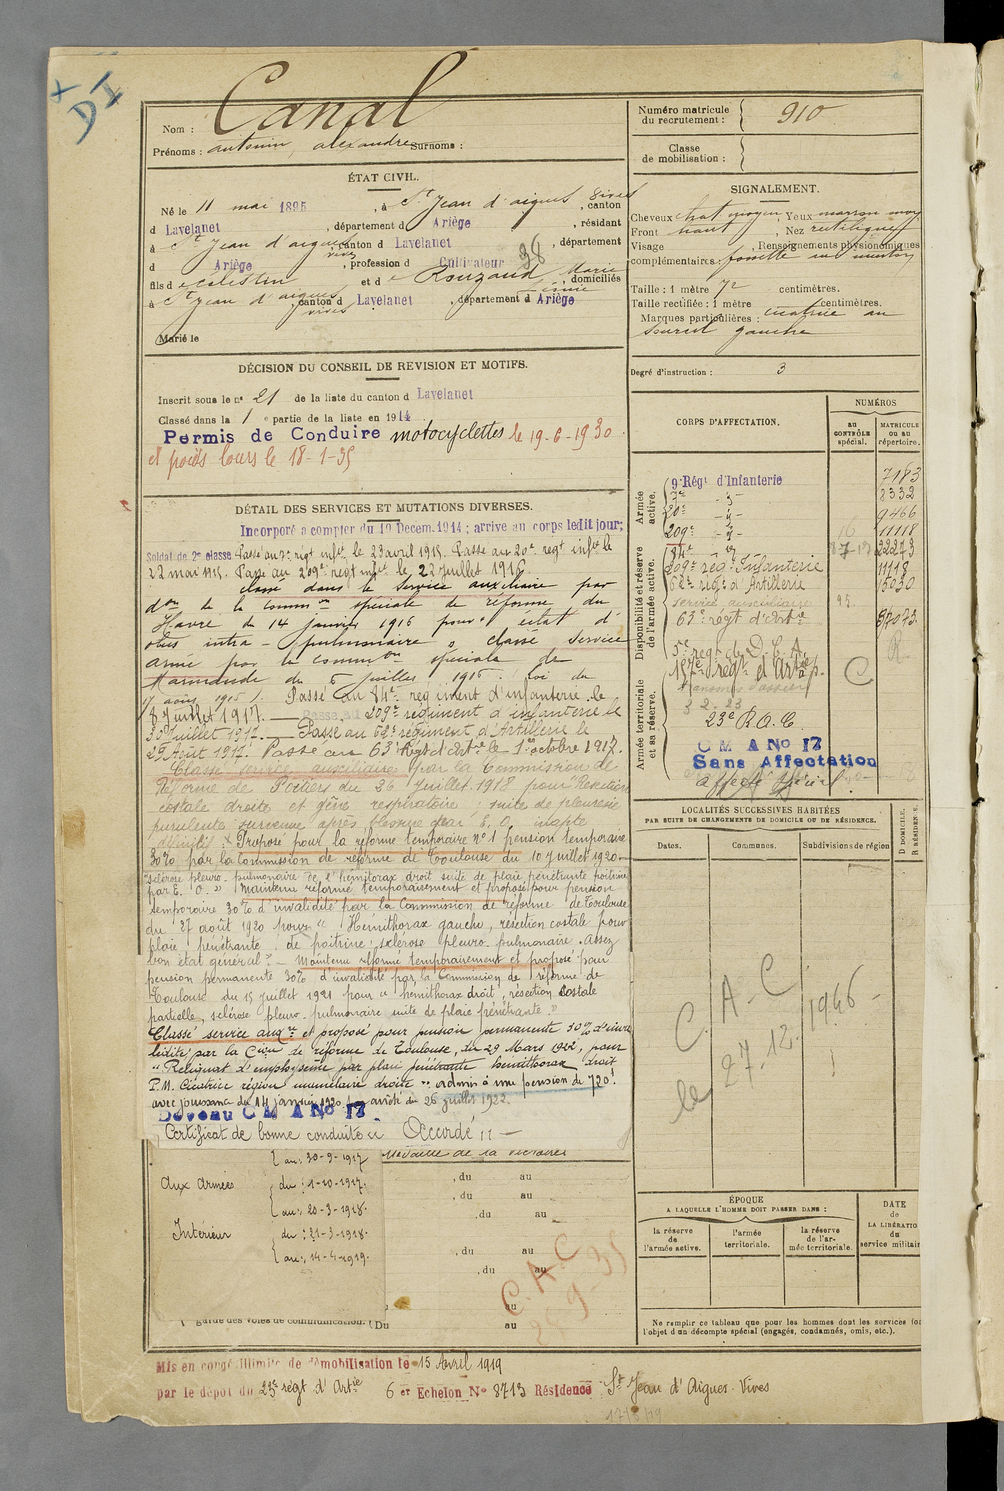 DI
Canal
Nom :
Prénoms : antonin, alexandre Surnoms :
ÉTAT CIVIL.
Né le 11 mai 1895, à St Jean d'aigues vives, canton
d Lavelanet, département d Ariège, résidant
à St Jean d'aigues vives, canton d Lavelanet, département
d Ariège, profession d Cultivateur 38
fils d e celestin et d e Rouzaud Marie, domiciliés
à St Jean d'aigues vives, canton d Lavelanet, département d Ariège
Marié le
DÉCISION DU CONSEIL DE REVISION ET MOTIFS.
Inscrit sous le no 21 de la liste du canton d Lavelanet
Classé dans la 1e partie de la liste en 1914
Permis de Conduire motocyclettes le 19-6-1930
et poids lours le 18-1-35
DÉTAIL DES SERVICES ET MUTATIONS DIVERSES.
Incorporé a compter du 19 Decem. 1914 ; arrive au corps ledit jour;
Soldat de 2e classe. Passé au 7e regt infie le 23 avril 1915. Passé au 20e regt infie le
22 mai 1915. Passé au 209e regt infie le 22 juillet 1915.
classé dans le service auxiliaire par
don de la common spéciale de réforme du
Havre du 14 janvier 1916 pour éclat d'
obus intra-pulmonaire classé service
armé par la common spéciale de
Marmande du 6 juillet 1916. loi du
17 août 1915. Passé au 84e regiment d'infanterie le
8 juillet 1917. Passé au 209e régiment d'infanterie le
30 juillet 1917. Passé au 62e régiment d'Artillerie le
29 Août 1917. Passé au 63e Régt d'Artie le 1er octobre 1917.
Classé service auxiliaire par la Commission de
Réforme de Poitiers du 26 juillet 1918 pour Resection
costale droite et gêne respiratoire ; suite de pleuresie
purulente survenue après blessure par E. O. inapte
Proposé pour la reforme temporaire no 1 pension temporaire
30% par la Commission de réforme de Toulouse du 10 juillet 1920
sclérose pleuro-pulmonaire de l'hémitorax droit suite de plaie pénétrante poitrine
par E. O. » Maintenu réformé temporairement et proposé pour pension
temporaire 30% d'invalidité par la Commission de réforme de Toulouse
du 27 août 1920 pour " Hémithorax gauche, résection costale pour
plaie pénétrante de poitrine ; sclérose pleuro-pulmonaire. assez
bon état général " - Maintenu réformé temporairement et proposé pour
pension permanente 30% d'invalidité par la Commission de réforme de
Toulouse du 15 juillet 1921 pour " hemithorax droit, resection costale
partielle, sclérose pleuro-pulmonaire suite de plaie pénétrante. »
Classé service auxre et proposé pour pension permanente 30% d'inva-
lidité par la Cion de réforme de Toulouse, du 29 Mars 1922, pour
" Reliquat d'emphysème par plaie pénétrante hemithorax droit
P.M. Cicatrice région mammelaire droite ". admis à une pension de 720f
avec jouissance du 14 janvier 1920 par arrêté du 26 juillet 1922.
Devenu C M A No 17
Certificat de bonne conduite " Accordé "
au : 30-9-1917
Medaille de la victoire
Aux Armées du : 1-10-1917.
au : 20-3-1918.
Intérieur du : 21-3-1918.
au : 14-4-1919.
, du au
, du au
, du au
, du au
, du au
au
C.A.C
garde des voies de communication. (Du au
Mis en congé illimité de démobilisation le 15 Avril 1919
par le dépot du 23e régt d'Artie 6er Echelon No 8713 Résidence St Jean d'Aigues-Vives
Numéro matricule du recrutement : 910
Classe de mobilisation :
SIGNALEMENT.
Cheveux chat moyen, Yeux marron moy
Front haut, Nez rectiligne
Visage , Renseignements physionomiques
complémentaires : fossette au menton
Taille : 1 mètre 72 centimètres.
Taille rectifiée : 1 mètre centimètres.
Marques particulières : cicatrice au
sourcil gauche
Degré d'instruction : 3
CORPS D'AFFECTATION.
NUMÉROS
au CONTRÔLE spécial.
MATRICULE OU AU répertoire.
Armée active.
9e Régt d'Infanterie 7183
7e -"- 8332
20e -"- 9466
209e -"- 11118
84e -"- 22273
Disponibilité et réserve de l'armée active.
209e rég. Infanterie 11118
62e régt d'Artillerie
service auxiliaire
63e régt d'Artie
5e régt de D.C.A.
Armée territoriale et sa réserve.
157e régt d'Artie
23e R.A.C
C M A No 17
Sans Affectation
C
LOCALITÉS SUCCESSIVES HABITÉES
PAR SUITE DE CHANGEMENTS DE DOMICILE OU DE RÉSIDENCE.
Dates. Communes. Subdivisions de région
D DOMICILE. R RÉSIDENCE.
C.A-C
le 27.12. 1946
ÉPOQUE
A LAQUELLE L'HOMME DOIT PASSER DANS :
la réserve de l'armée active.
l'armée territoriale.
la réserve de l'armée territoriale.
DATE de LA LIBÉRATIO du service militair
Ne remplir ce tableau que pour les hommes dont les services
l'objet d'un décompte spécial (engagés, condamnés, omis, etc.).